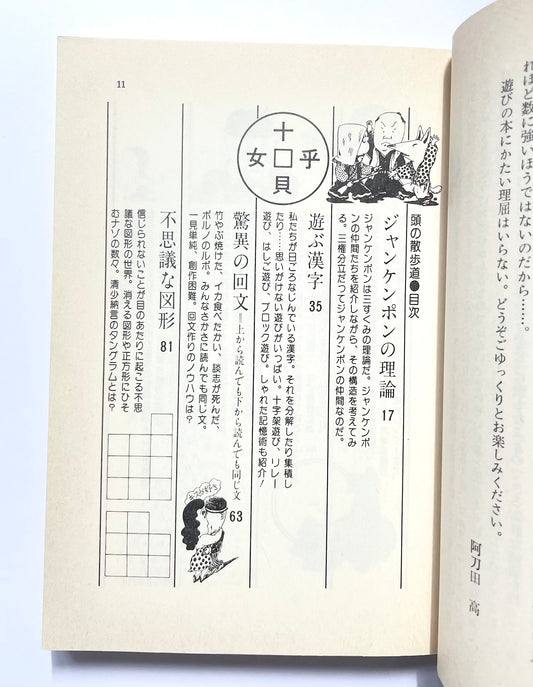 れほど数に強いほうではないのだから……。
遊びの本にかたい理屈はいらない。どうぞごゆっくりとお楽しみください。
阿刀田 高
11
頭の散歩道●目次
ジャンケンポンの理論 17
ジャンケンポンは三すくみの理論だ。ジャンケンポ
ンの仲間たちを紹介しながら、その構造を考えてみ
る。三権分立だってジャンケンポンの仲間なのだ。
十
女□乎
貝
遊ぶ漢字 35
私たちが日ごろなじんでいる漢字。それを分解したり集積し
たり……思いがけない遊びがいっぱい。十字架遊び、リレー
遊び、はしご遊び、ブロック遊び。しゃれた記憶術も紹介!
驚異の回文=上から読んでも下から読んでも同じ文 63
竹やぶ焼けた、イカ食べたかい、談志が死んだ、
ポルノのルポ。みんなさかさに読んでも同じ文。
一見単純、創作困難。回文作りのノウハウは?
不思議な図形 81
信じられないことが目のあたりに起こる不思
議な図形の世界。消える図形や正方形にひそ
むナゾの数々。清少納言のタングラムとは?